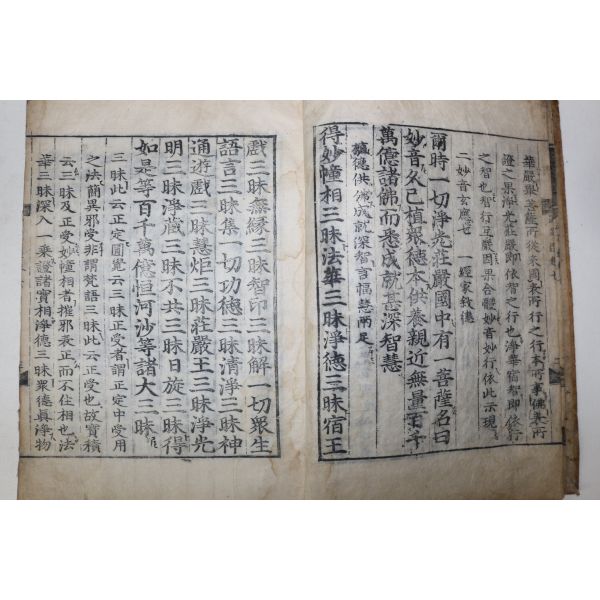 證之果淨光莊嚴即依智之行也淨華宿智即依行
之智也智行互嚴因果合體妙音妙行依此示現
二妙音玄應七 一經家敘德
爾時一切淨光莊嚴國中有一菩薩名曰
妙音久已植衆德本供養親近無量百千
萬億諸佛而悉成就甚深智慧
植德供佛成就深智言福慧兩足
得妙幢相三昧法華三昧淨德三昧宿王
戲三昧無緣三昧智印三昧解一切衆生
語言三昧集一切功德三昧清淨三昧神
通遊戲三昧慧炬三昧莊嚴王三昧淨光
明三昧淨藏三昧不共三昧日旋三昧得
如是等百千萬億恒河沙等諸大三昧
三昧此云正定圓覺云三昧正受者謂正定中受用
之法簡異邪受非謂梵語三昧此云正受也故寶積
云三昧及正受妙幢相者摧邪表正而不住相也法
華三昧深入一乘證諸實相淨德三昧衆德眞淨物